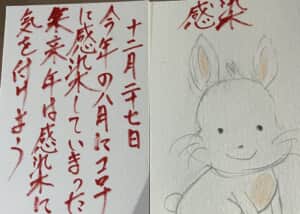 十二月二十七日
今年の八月にコロナ
に感染していまった
来年は感染に
気を付けよう
感染